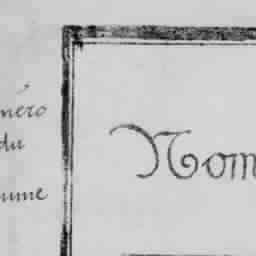 méro
du
ume
Nom